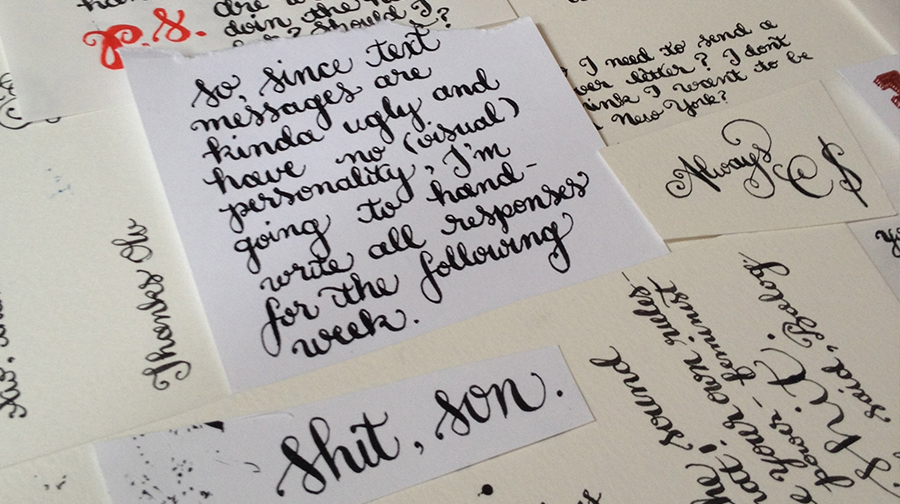 P.S.
doin the
? Should I
?
so, since text
messages are
kinda ugly and
have no (visual)
personality, I'm
going to hand-
write all responses
for the following
week.
I need to send a
letter? I don't
I want to be
New York?
Always
Thanks
shit, son.
sound
your own rules
power-feminist
said,